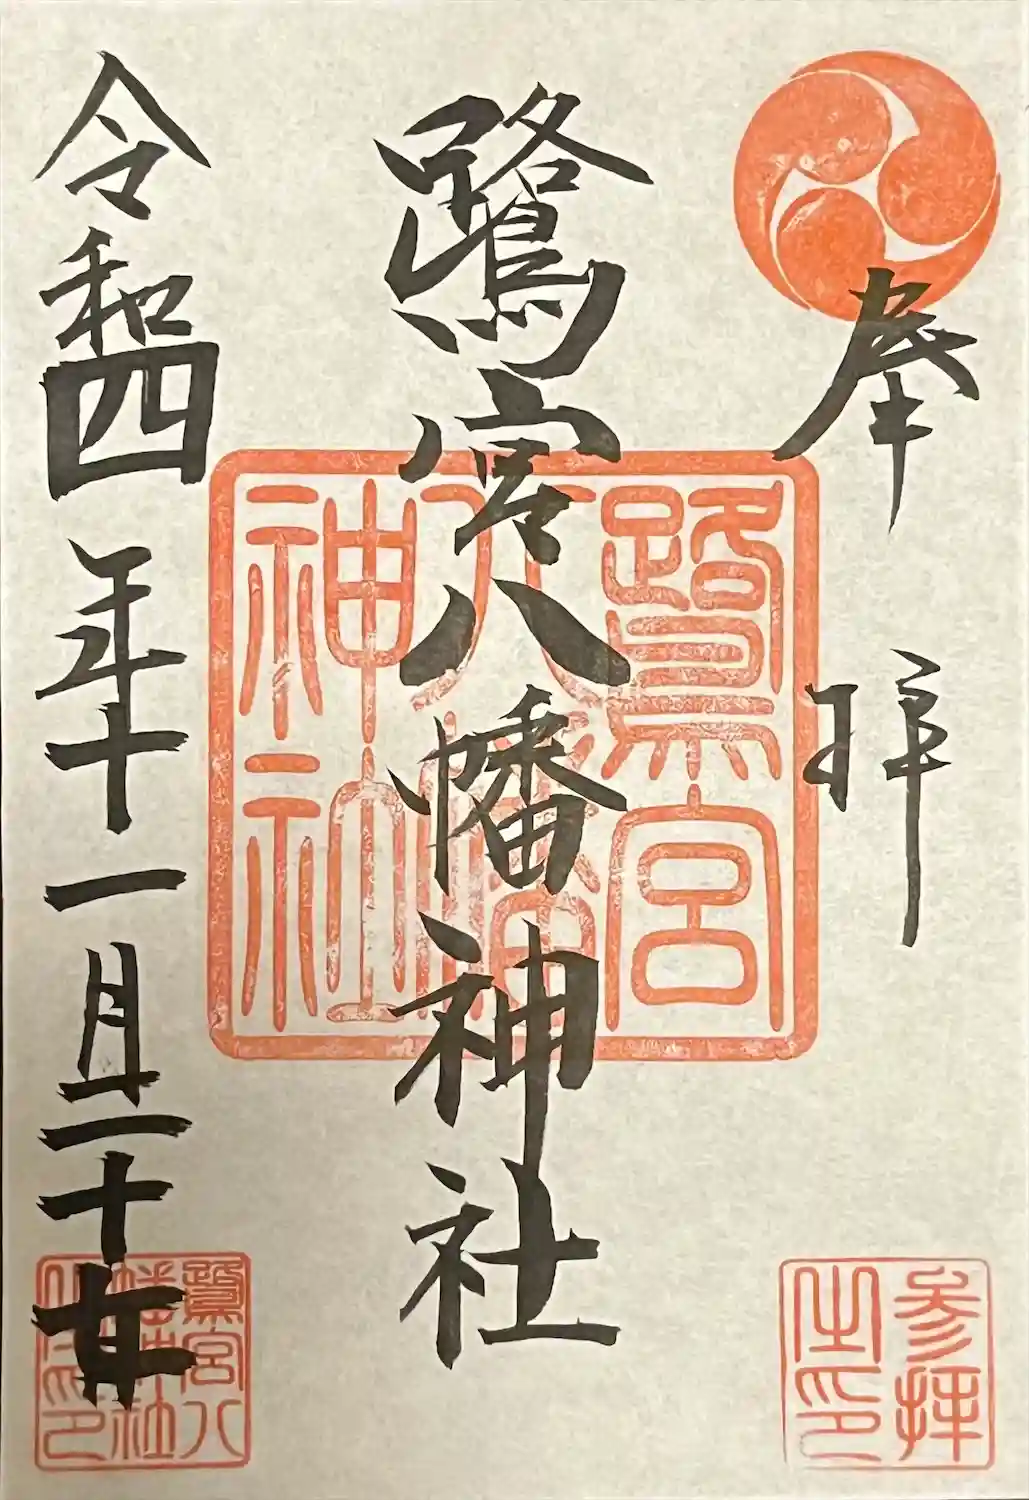 奉拝
参拝
之印
鷺宮八幡神社
鷺宮
八幡
神社
令和四年十一月二十
鷺宮八
幡神社
之印